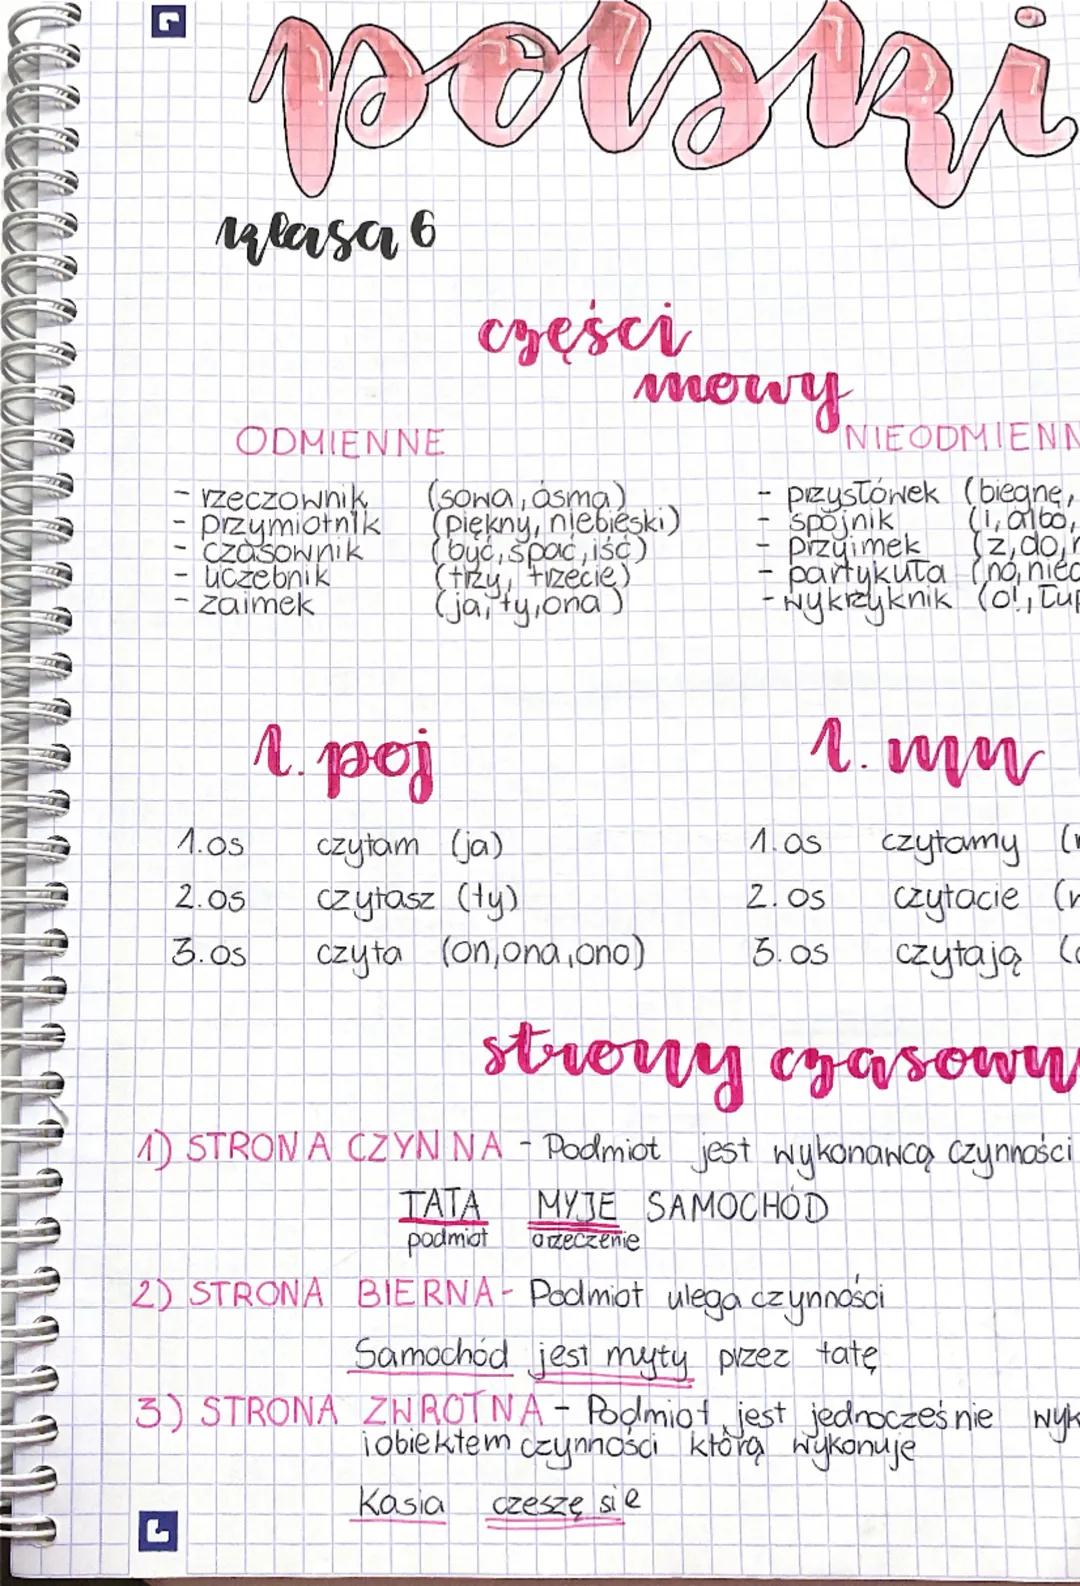 polski
klasa 6
części
mowy
ODMIENNE NIEODMIENN
- rzeczownik (sowa, astma) - przysłówek (biegnę,
- przymiotnik (piękny, niebieski) - spójnik (i, albo,
- czasownik (być, spać, iść) - przyimek (z, do, n
- liczebnik (trzy, trzecie) - partykuła (no, niec
- zaimek (ja, ty, ona) - wykrzyknik (o!, łup
l. poj l. mn
1.os czytam (ja) 1.os czytamy (
2.os czytasz (ty) 2.os czytacie (
3.os czyta (on, ona, ono) 3.os czytają (
strony czasown
1) STRONA CZYNNA - Podmiot jest wykonawcą czynności
TATA MYJE SAMOCHÓD
podmiot orzeczenie
2) STRONA BIERNA - Podmiot ulega czynności
Samochód jest myty przez tatę
3) STRONA ZWROTNA - Podmiot jest jednocześnie wyk
i obiektem czynności którą wykonuje
Kasia czeszę się